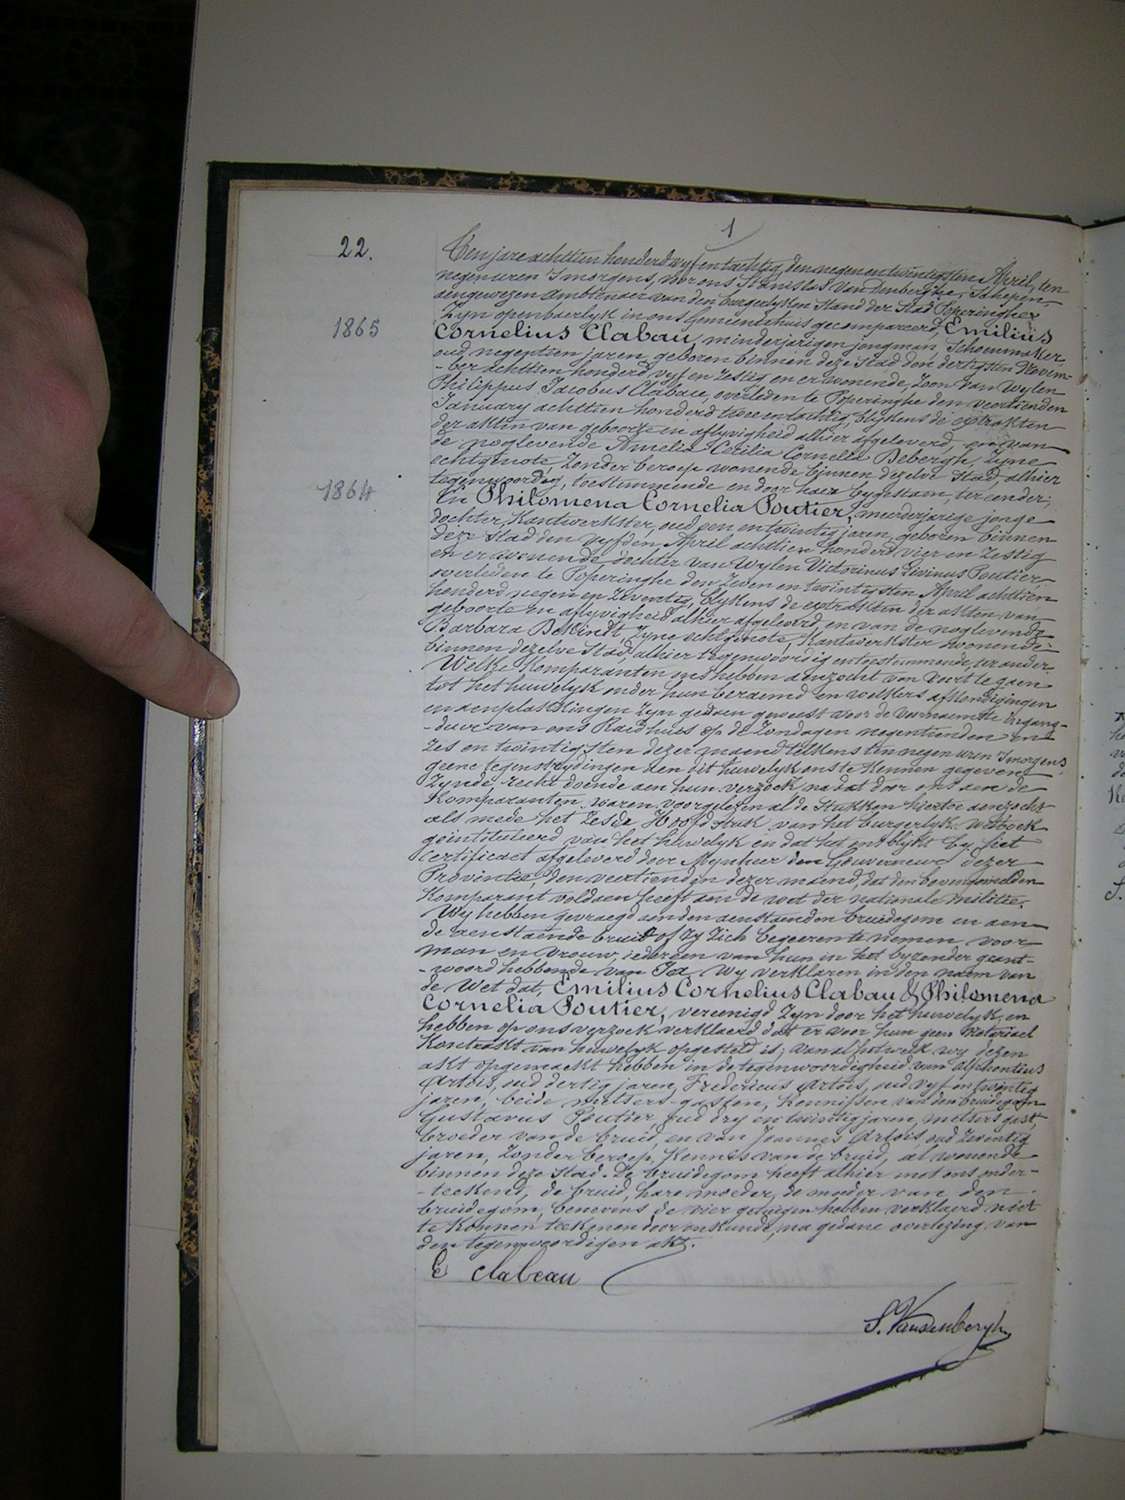 1
22.
Ten jare achttien honderd vyf en tachtig, den negen en twintigsten April, ten
negen uren s'morgens, voor ons Stanislas Vandenberghe, Schepen,
aengewezen ambtenaer van den burgerlyken Stand der Stad Poperinghe,
Zyn openbaerlyk in ons Gemeentehuis gecompareerd, Emilius
1865
Cornelius Clabau, minderjarigen jongman, Schoenmaker
oud negentien jaren, geboren binnen deze Stad den dertigsten Novem-
-ber achttien honderd vyf en zestig en er wonende, zoon van wylen
Philippus Jacobus Clabau, overleden te Poperinghe den veertienden
January achttien honderd twee en tachtig, blykens de extrakten
der akten van geboorte en aflyvigheid alhier afgeleverd, en van
de noglevende Amelia Cecilia Cornelia Debergh, Zyne
echtgenote, zonder beroep wonende binnen dezelve Stad alhier
tegenwoordig, toestemmende en door haer bygestaen, ter eender;
1864
En Philomena Cornelia Poutier, meerderjarige jonge
dochter, Kantwerkster, oud een en twintig jaren, geboren binnen
deze Stad den vyfden April achttien honderd vier en zestig
en er wonende dochter van Wylen Victorinus Livinus Poutier
overleden te Poperinghe den zeven en twintigsten April achttien
honderd negen en zeventig, blykens de extrakten der akten van
geboorte en aflyvigheid alhier afgeleverd, en van de noglevende
Barbara Dekindt, Zyne echtgenote, Kantwerkster wonende
binnen dezelve Stad, alhier tegenwoordig en toestemmende, ter ander
Welke Komparanten ons hebben aenzocht van voort te gaen
tot het huwelyk onder hun beraemd en welkers afkondigingen
en aenplakkingen zyn gedaen geweest voor de voornaemste ingang-
-deure van ons Raedhuis op de Zondagen negentienden en
zes en twintigsten dezer maend telkens ten negen uren s'morgens
geene tegenstrydingen aen dit huwelyk ons te kennen gegeven
zynde, recht doende aen hun verzoek na dat door ons aen de
Komparanten waren voorgelezen al de Stukken hiertoe aenzocht
als mede het Zesde Hoofdstuk van het burgerlyk Wetboek
geïntituleerd van het huwelyk en dat het ons blykt by het
certificaet afgeleverd door Mynheer den Gouverneur dezer
Provintie, den veertienden dezer maend, dat den bovengemelden
Komparant voldaen heeft aen de wet der nationale militie.
Wy hebben gevraegd aen den aenstaenden bruidegom en aen
de aenstaende bruid of zy zich begeeren te nemen voor
man en vrouw, iedereen van hun in het byzonder geant-
-woord hebbende van Ja, Wy verklaren in den naem van
de Wet dat, Emilius Cornelius Clabau & Philomena
Cornelia Poutier, vereenigd zyn door het huwelyk, en
hebben op ons verzoek verklaerd dat er voor hun geen Notariael
Kontrakt van huwelyk opgesteld is; van al hetwelk wy dezen
akt opgemaekt hebben in de tegenwoordigheid van Alphontius
Artois, oud dertig jaren, Fredericus Artois, oud vyf en twintig
jaren, beide melsers-gasten, Kennissen van den bruidegom
Gustavus Poutier, oud dry en twintig jaren, melsers gast,
broeder van de bruid, en van Joannes Artois oud zeventig
jaren, zonder beroep, Kennis van de bruid, al wonende
binnen deze Stad. De bruidegom heeft alhier met ons onder-
-teekend, de bruid, hare moeder, de moeder van den
bruidegom, benevens de vier getuigen hebben verklaerd niet
te konnen teekenen door onkunde, na gedane overlezing van
den tegenwoordigen akt.
E Clabeau
S. Vandenberghe